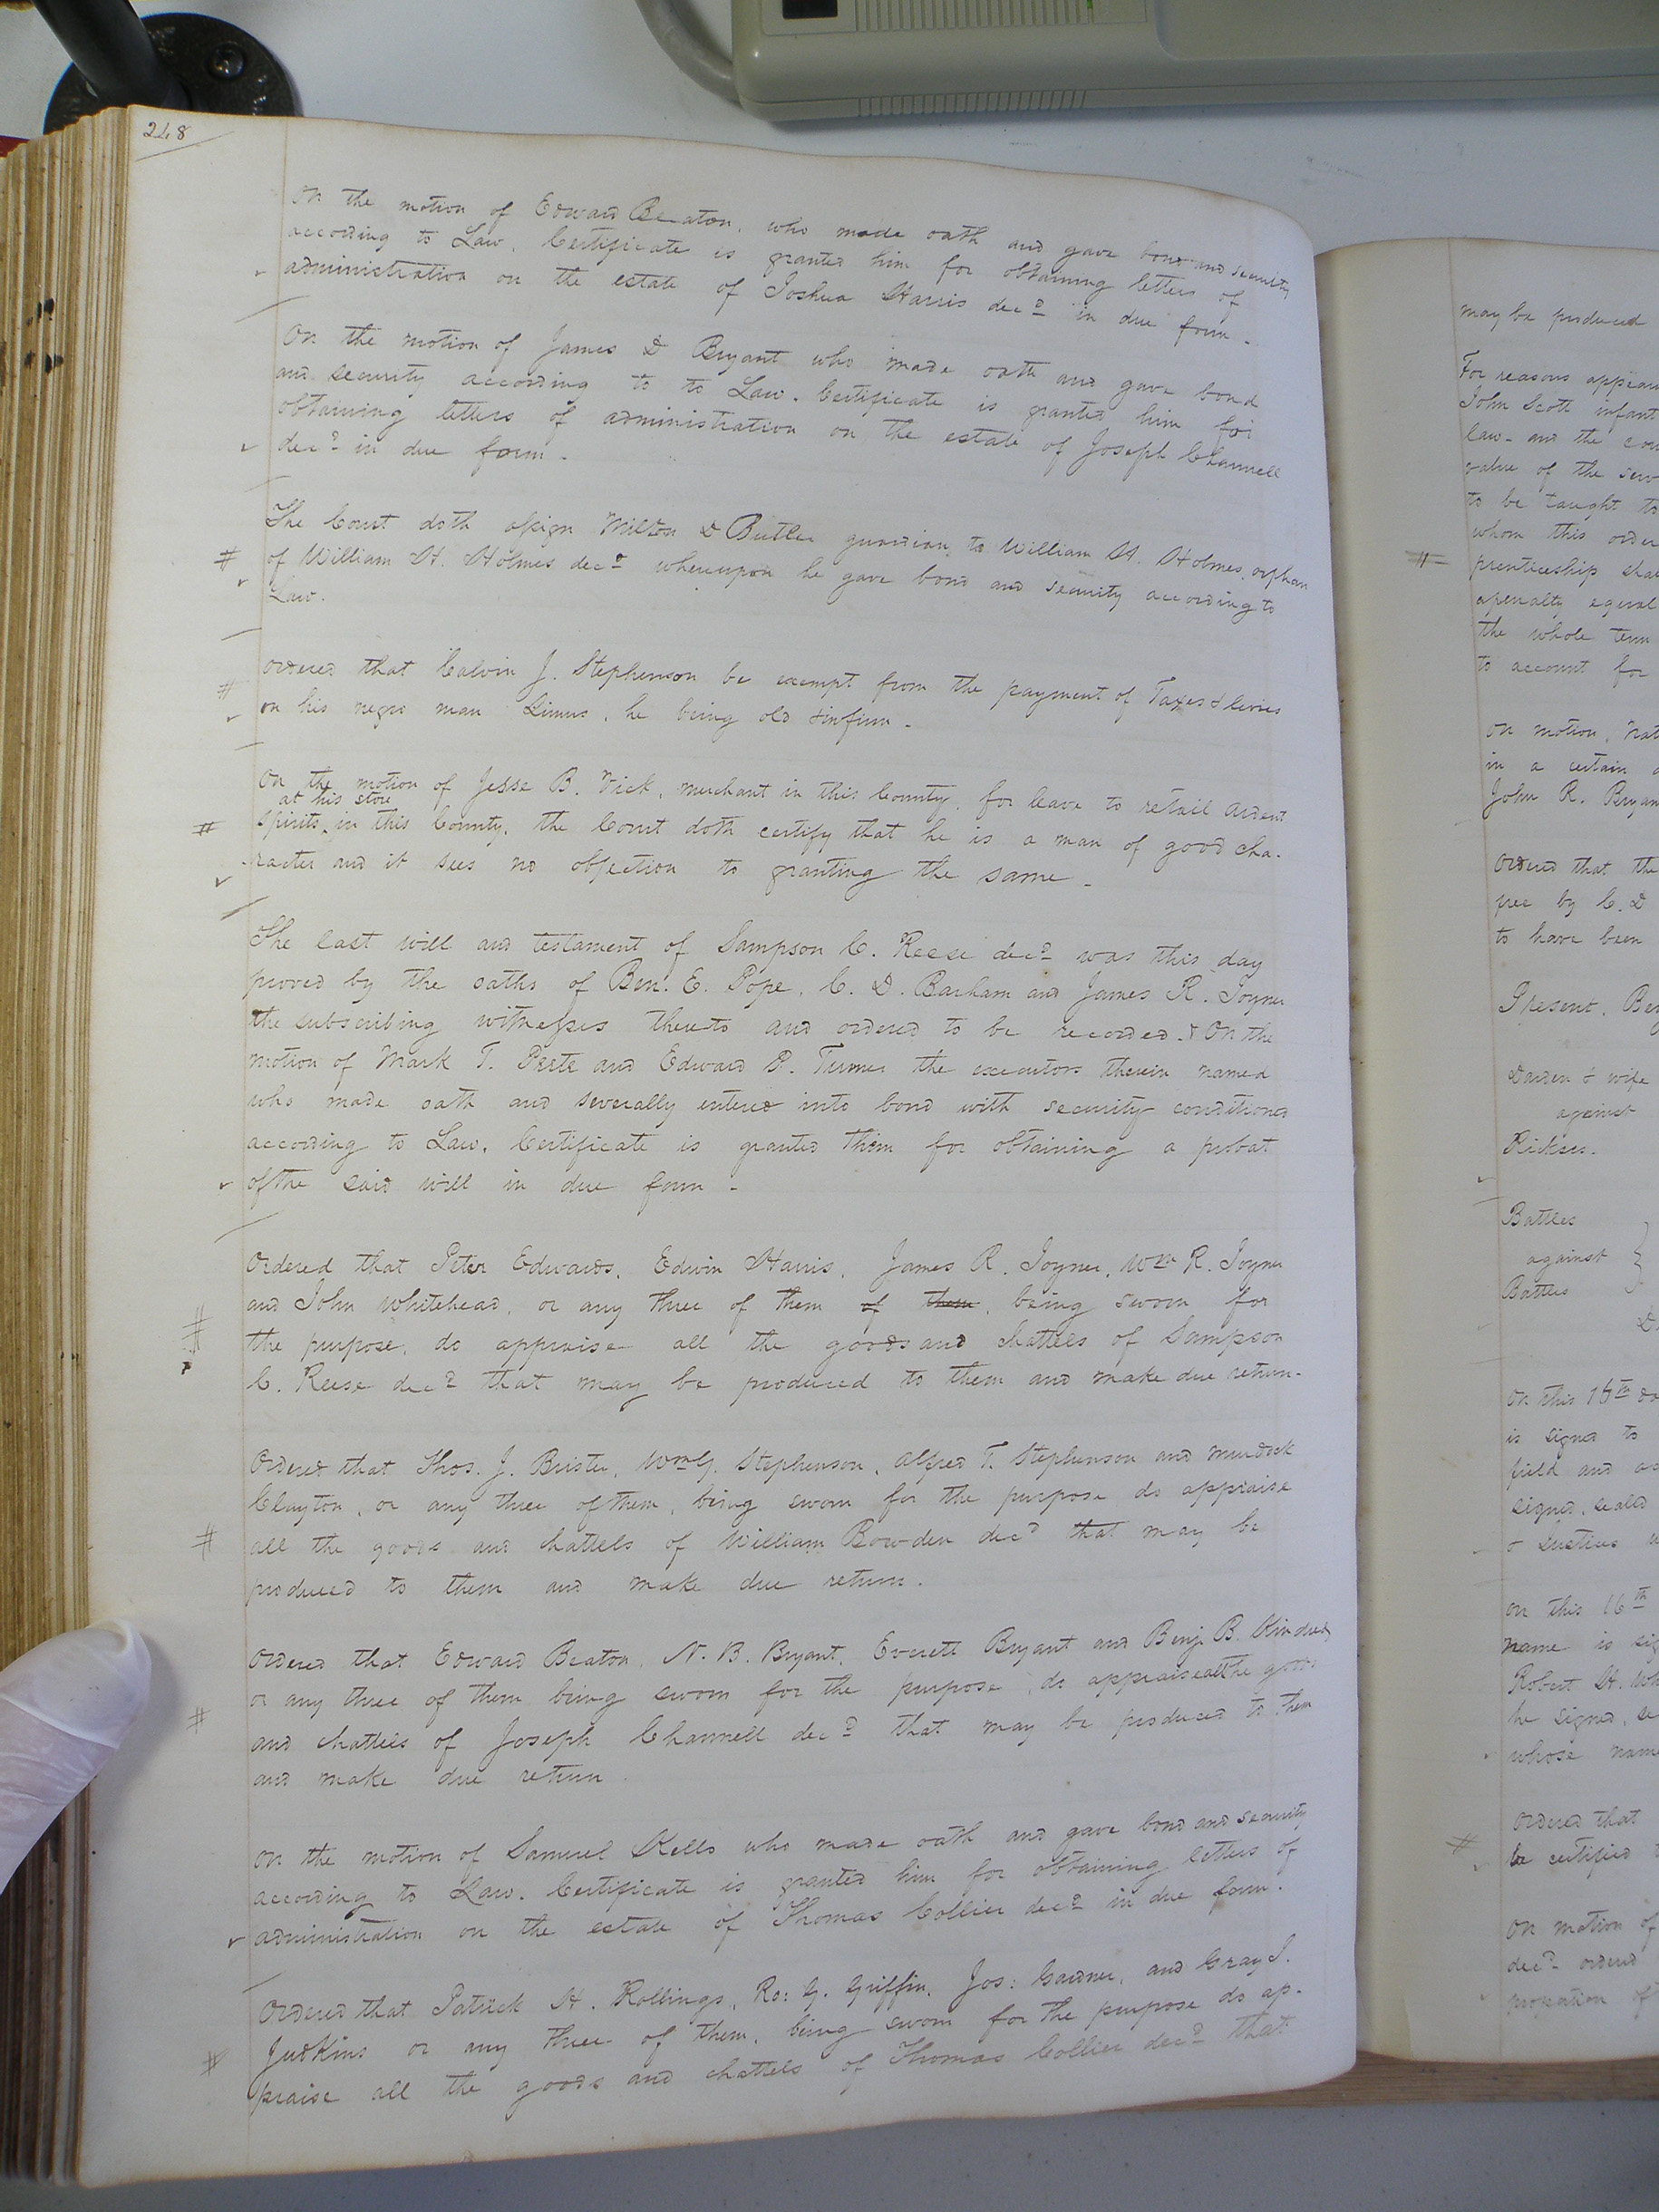 248
On the motion of Edward Beaton, who made oath and gave bond and security
according to Law. Certificate is granted him for obtaining letters of
administration on the estate of Joshua Harris decd in due form.
On the motion of James D Bryant who made oath and gave bond
and security according to to Law. Certificate is granted him for
obtaining letters of administration on the estate of Joseph Channell
decd in due form.
The Court doth assign Milton D Butler guardian to William H. Holmes, orphan
# of William H. Holmes decd whereupon he gave bond and security according to
Law.
Ordered that Calvin J. Stephenson be exempt from the payment of Taxes & levies
# on his negro man Limus, he being old & infirm.
On the motion of Jesse B. Vick, merchant in this County, for leave to retail ardent
at his store
# spirits in this County, the Court doth certify that he is a man of good cha-
racter and it sees no objection to granting the same.
The last will and testament of Sampson C. Reese decd was this day
proved by the oaths of Ben. E. Pope, C. D. Barham and James R. Joyner
the subscribing witnesses thereto and ordered to be recorded. & On the
motion of Mark T. Peete and Edward P. Turner the executors therein named
who made oath and severally entered into bond with security conditioned
according to Law, Certificate is granted them for obtaining a probat
of the said will in due form.
Ordered that Peter Edwards, Edwin Harris, James R. Joyner, Wm R. Joyner
and John Whitehead, or any three of them of them, being sworn for
the purpose, do appraise all the goods and chattels of Sampson
C. Reese decd that may be produced to them and make due return.
Ordered that Thos. J. Brister, Wm G. Stephenson, Alfred T. Stephenson and Murdock
Clayton, or any three of them, being sworn for the purpose do appraise
# all the goods and chattels of William Bowden decd that may be
produced to them and make due return.
Ordered that Edward Beaton, N. B. Bryant, Everett Bryant and Benj. B. Kindred,
or any three of them being sworn for the purpose, do appraise all the goods
# and chattels of Joseph Channell decd that may be produced to them
and make due return.
On the motion of Samuel Kello who made oath and gave bond and security
according to Law. Certificate is granted him for obtaining letters of
administration on the estate of Thomas Collier decd in due form.
Ordered that Patrick H. Rollings, Ro: G. Griffin, Jos: Gardner, and Gray J.
Judkins or any three of them, being sworn for the purpose do ap-
# praise all the goods and chattels of Thomas Collier decd that
may be produced
For reasons appear
John Scott infant
law. and the cou
value of the serv
to be taught to
whom this order
prenticeship shal
a penalty equal
the whole term
to account for
On motion, Nat
in a certain
John R. Bryan
Ordered that the
free by C. D
to have been
Present, Ben
Darden & wife
against
Ricks
Battles
against
Battles
On this 16th da
is signed to
field and as
signed, sealed
& Justices
On this 16th
name is sig
Robert H. Wh
he signed, se
whose name
Ordered that
be certified
On motion of
decd ordered